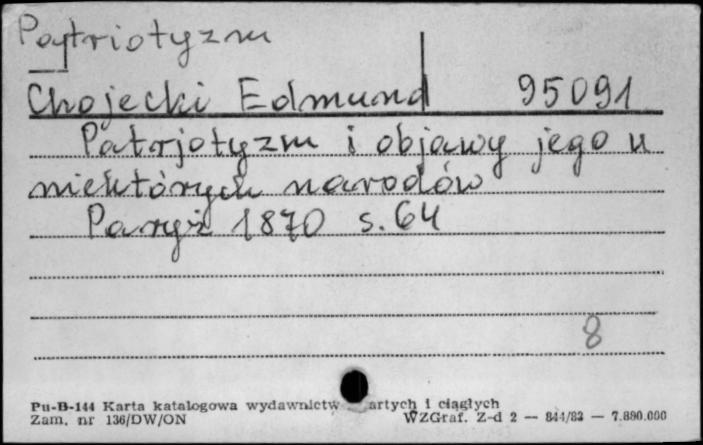 Patriotyzm
Chojecki Edmund 95091
Patrjotyzm i objawy jego u
niektórych narodów
Paryż 1870 s. 64
8
Pu-B-144 Karta katalogowa wydawnictw artych i ciągłych
Zam. nr 136/DW/ON WZGraf. Z-d 2 — 844/83 — 7.890.000